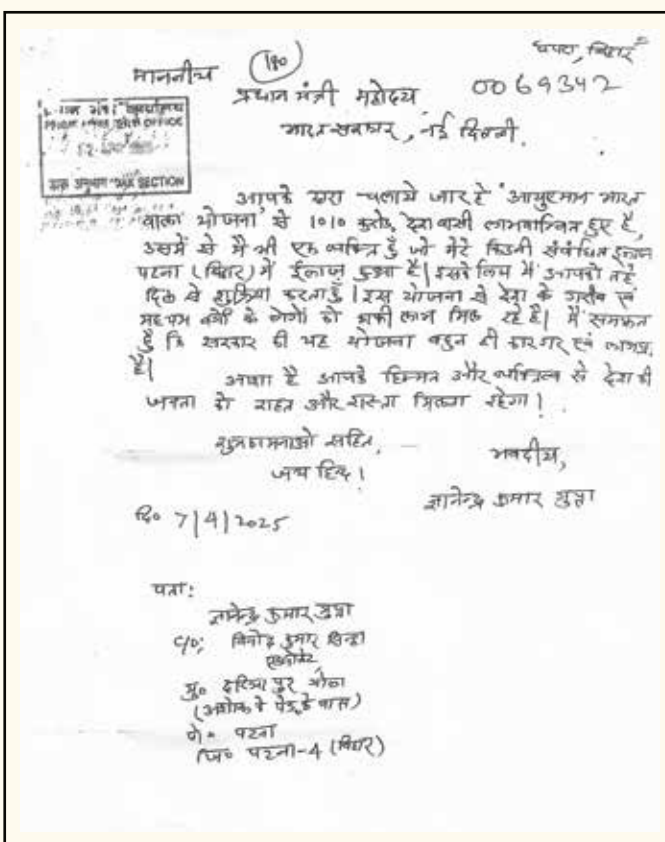 छपरा, बिहार
माननीय
190
प्रधान मंत्री महोदय
0069342
भारत सरकार, नई दिल्ली.
PRIME MINISTER'S OFFICE
डाक अनुभाग DAK SECTION
आपके द्वारा चलाये जा रहे 'आयुष्मान भारत
वाला योजना' से 1010 करोड़ देशवासी लाभान्वित हुए है,
उसमें से मैं भी एक व्यक्ति हूँ जो मेरे किडनी संबंधित ईलाज
पटना (बिहार) में ईलाज हुआ है| इसके लिए मैं आपको तहे
दिल से शुक्रिया करता हूँ| इस योजना से देश के गरीब एवं
मध्यम वर्गो के लोगों को काफी लाभ मिल रहे है| मैं समझता
हूँ कि सरकार की यह योजना बहुत ही कारगर एवं लाभप्रद
है|
आशा है आपके हिम्मत और व्यक्तित्व से देश की
जनता को राहत और रास्ता मिलता रहेगा!
शुभकामनाओ सहित,
जय हिन्द!
भवदीय,
ज्ञानेन्द्र कुमार गुप्ता
दि० 7/4/2025
पता:
ज्ञानेन्द्र कुमार गुप्ता
C/O; विनोद कुमार सिन्हा
एडवोकेट
मु० दरियापुर गोला
(अशोक के पेड़ के पास)
पो० पटना
जि० पटना-4 (बिहार)